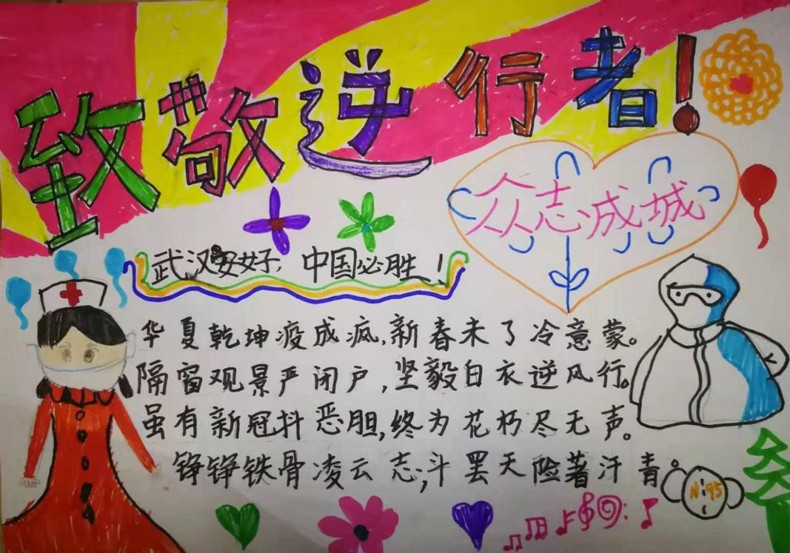 致敬逆行者!
众志成城
武汉安好,中国必胜!
华夏乾坤疫成疯,新春未了冷意蒙。
隔窗观景严闭户,坚毅白衣逆风行。
虽有新冠抖恶胆,终为花朽尽无声。
铮铮铁骨凌云志,斗罢天险著汗青。
N95